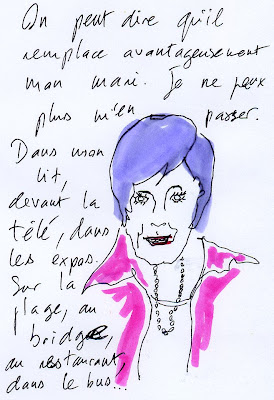 On peut dire qu'il
remplace avantageusement
mon mari. Je ne peux
plus m'en passer.
Dans mon
lit,
devant la
télé, dans
les expos.
Sur la
plage, au
bridge,
au restaurant,
dans le bus...